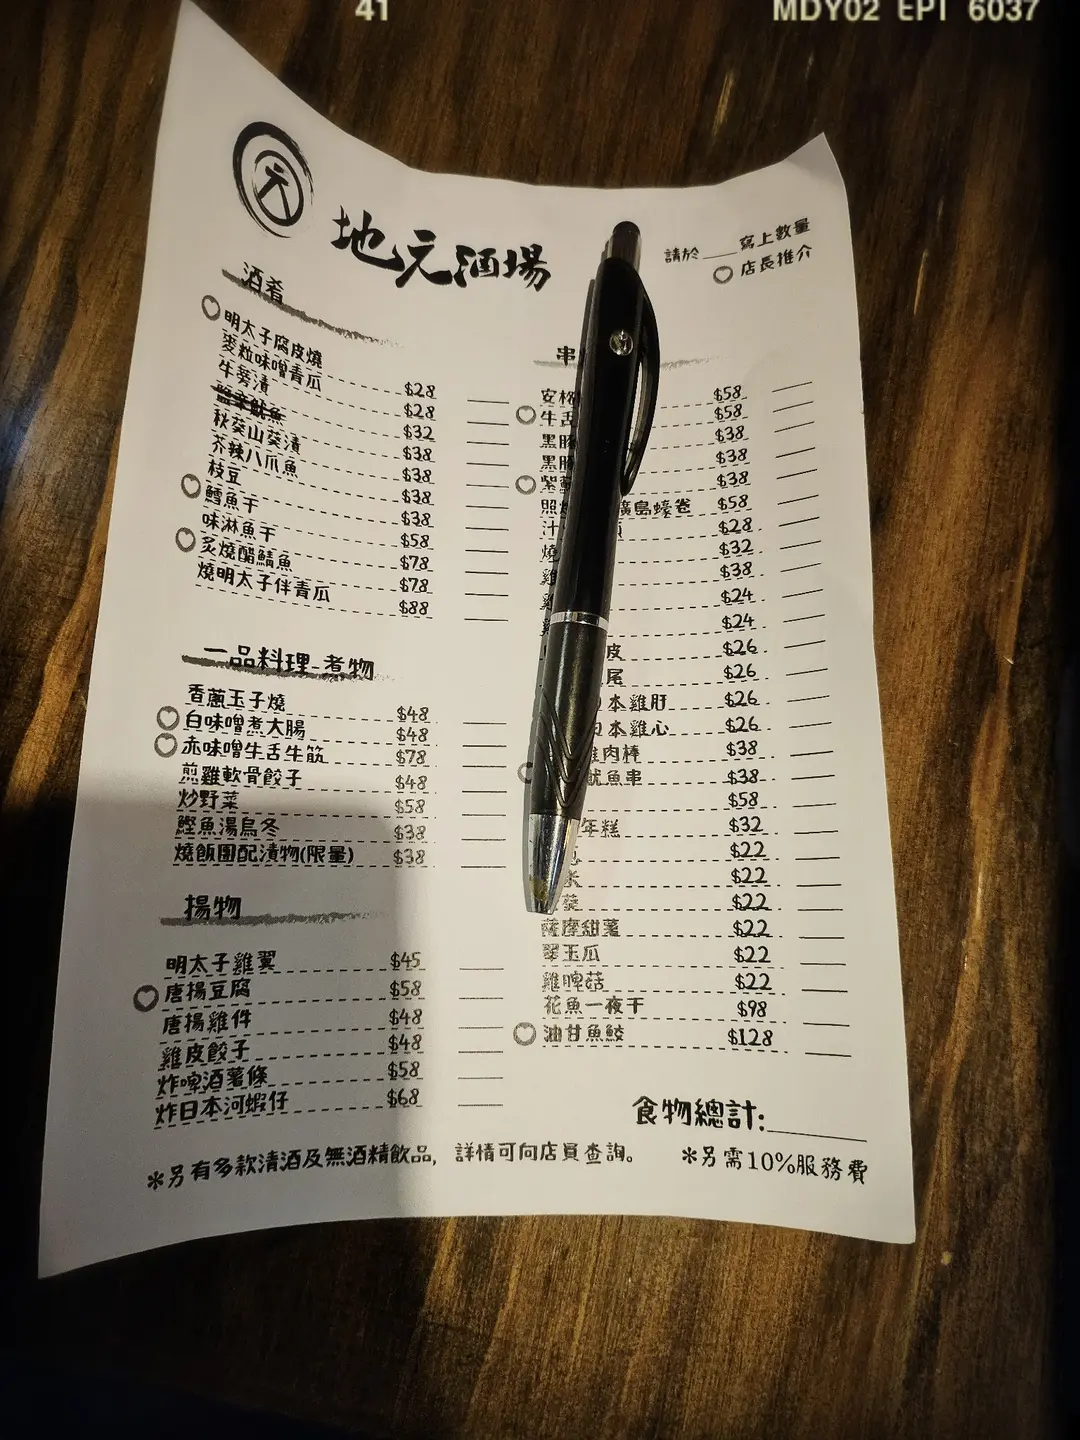 41
MDY02 EPI 6037
地元酒場
請於____寫上數量
店長推介
酒肴
明太子腐皮燒 $28
麥粒味噌青瓜 $28
牛蒡漬 $32
鹽辛魷魚 $38
秋葵山葵漬 $38
芥辣八爪魚 $38
枝豆 $38
鱈魚干 $58
味淋魚干 $78
炙燒醋鯖魚 $78
燒明太子伴青瓜 $88
一品料理-煮物
香蔥玉子燒 $48
白味噌煮大腸 $48
赤味噌牛舌牛筋 $78
煎雞軟骨餃子 $48
炒野菜 $58
鰹魚湯烏冬 $38
燒飯團配漬物(限量) $38
揚物
明太子雞翼 $45
唐揚豆腐 $58
唐揚雞件 $48
雞皮餃子 $48
炸啤酒薯條 $58
炸日本河蝦仔 $68
串
安格 $58
牛舌 $58
黑豚 $38
黑豚 $38
紫蘇 $38
照燒 廣島蠔卷 $58
汁 $28
燒 $32
雞 $38
雞 $24
雞 $24
皮 $26
尾 $26
日本雞肝 $26
日本雞心 $26
雞肉棒 $38
魷魚串 $38
$58
年糕 $32
$22
米 $22
葵 $22
薩摩甜薯 $22
翠玉瓜 $22
雞啤菇 $22
花魚一夜干 $98
油甘魚鮫 $128
食物總計:______
*另有多款清酒及無酒精飲品，詳情可向店員查詢。
*另需10%服務費